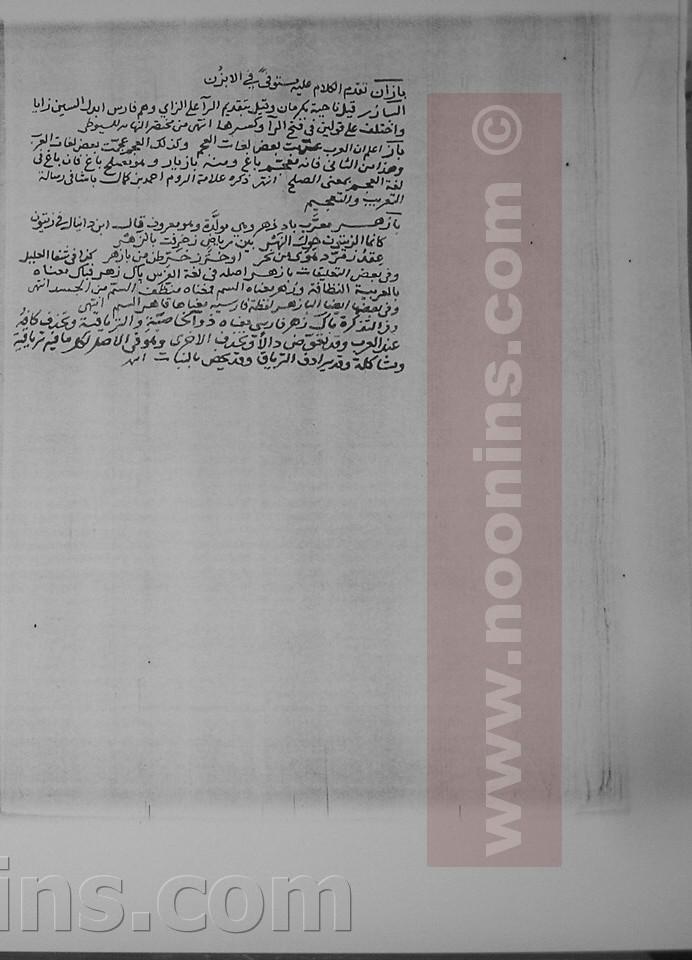 بازان تقدم الكلام عليه مستوفىً في الابزن
البازر قيل ناحية بكرمان وقيل بتقديم الرآ على الزاي وهم فارس ابدلت السين زايا
واختلف على قولين في فتح الرآ وكسرها انتهى من مختصر النهاية للسيوطي
باز اعلم ان العرب عربت بعض لغات العجم وكذلك العجم عجمت بعض لغات العرب
وهذا من الثاني فانه معجم باغ ومنه بازيار وهو بعلم باغ فان باغ في
لغة العجم بمعنى الصلح انتهى ذكره علامة الروم احمد بن كمال باشا في رسالة
التعريب والتعجيم
بازهر معرَّب باد زهر وهي مولَّدة وهو معروف قال ابن دانيال في زيتون
كانما الزيتون حول النهر بين رياض زخرفت بالزهر
عقد زمرد من نحر او خرز خرطن من بازهر كذا في شفا الغليل
وفي بعض التعليقات بازهر اصله في لغة الفرس باك زهر فباك معناه
بالعربية النظافة وزهر معناه السم فمعناه منظف السم من الجسد انتهى
وفي بعضها ايضا البازهر لفظة فارسية معناها قاهر السم انتهى
وفي التذكرة باك زهر فارسي معناه ذو الخاصية والترياقية وتحذف كافه
عند العرب وقد تعوض دالا وتحذف الاخرى وهو في الاصل لكل ما فيه ترياقية
ومشاكلة وقد يرادف الترياق وقد يخص بالنبات اهـ
www.noonins.com ©
ins.com